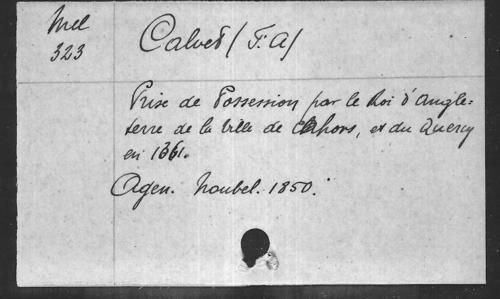 Mel
323
Calvet (F. A)
Prise de Possession par le Roi d'Angle-
terre de la Ville de Cahors, et du Quercy
en 1361.
Agen. Noubel. 1850.